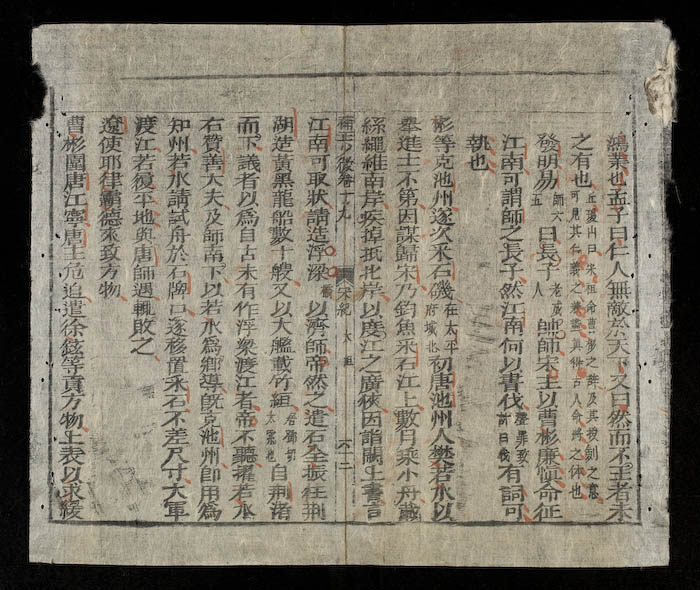 鴻業也孟子曰仁人無敵於天下又曰然而不王者未
之有也丘瓊山曰宋祖命曹彬之辭及其授劍之意
可見其仁義之兼盡真得古人命將之体也
發明易師六五曰長子老成人帥師宋主以曹彬廉慎命征
江南可謂師之長子然江南何以書伐聲罪致討曰伐有詞可
執也
彬等克池州遂次采石磯在太平府城北初唐池州人樊若水以
舉進士不第因謀歸宋乃釣魚采石江上數月乘小舟載
絲繩維南岸疾掉抵北岸以度江之廣狹因詣闕上書言
江南可取狀請造浮梁以濟師帝然之遣石全振往荆
湖造黃黑龍船數十艘又以大艦載竹絙居鄧切大索也自荆渚
而下議者以爲自古未有作浮梁渡江者帝不聽擢若水
右贊善大夫及師南下以若水爲鄉導旣克池州即用爲
知州若水請試舟於石牌口遂移置采石不差尺寸大軍
渡江若履平地與唐師遇輒敗之
遼使耶律霸德來致方物
曹彬圍唐江寧唐主危迫遣徐鉉等貢方物上表以求緩